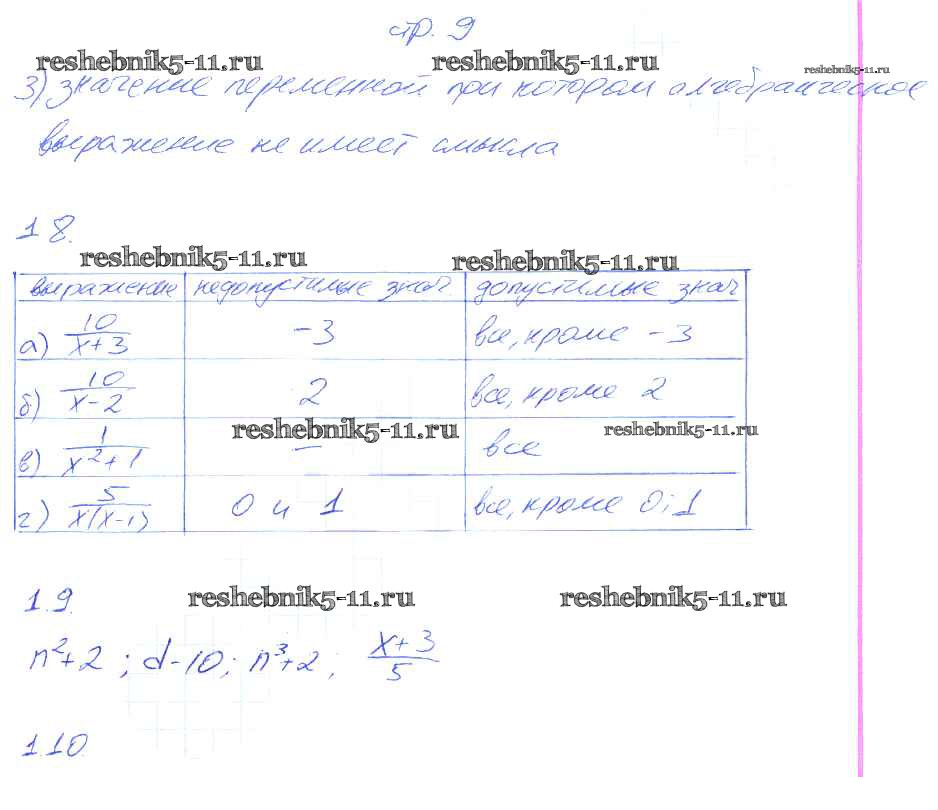 стр. 9
reshebnik5-11.ru reshebnik5-11.ru reshebnik5-11.ru
3) значение переменной при котором алгебраическое
выражение не имеет смысла
1 8.
reshebnik5-11.ru reshebnik5-11.ru
выражение недопустимые знач. допустимые знач
а) 10/(x+3) -3 все, кроме -3
б) 10/(x-2) 2 все, кроме 2
reshebnik5-11.ru reshebnik5-11.ru
в) 1/(x²+1) – все
г) 5/(x(x-1)) 0 и 1 все, кроме 0; 1
1.9. reshebnik5-11.ru reshebnik5-11.ru
n²+2 ; d-10 ; n³+2 ; (x+3)/5
1.10.